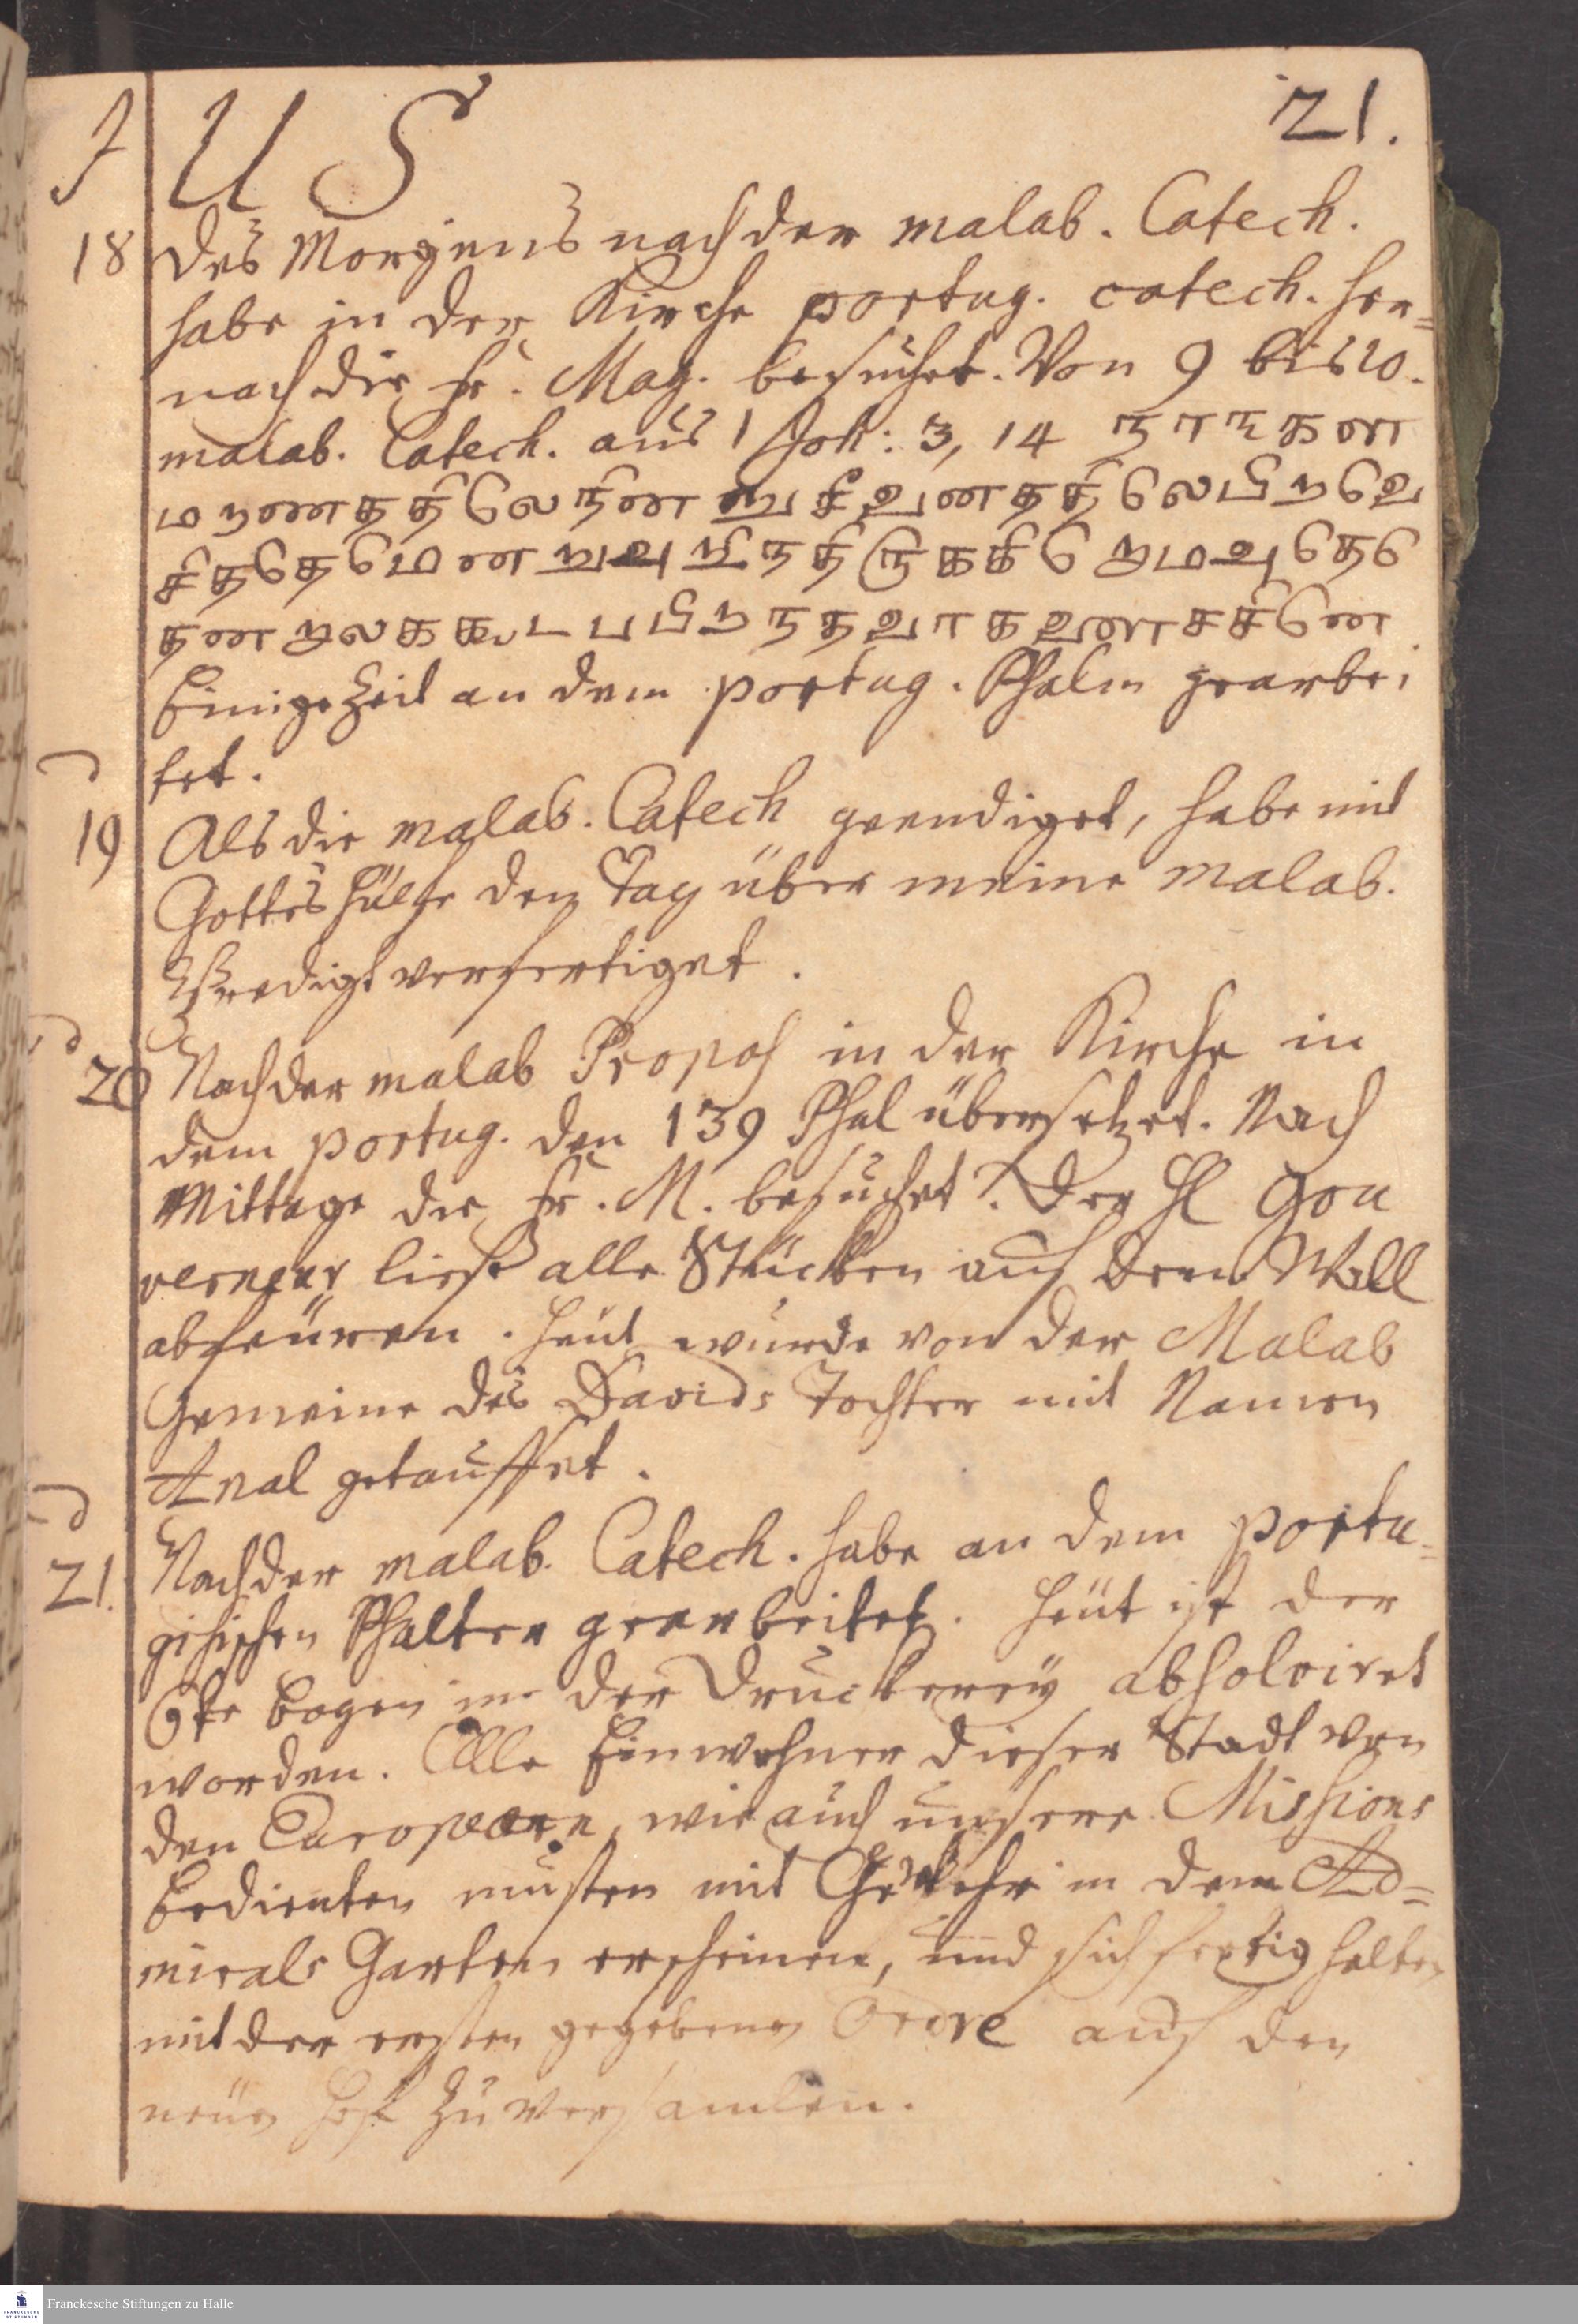 J U S
21.
18 Des Morgens nach der malab. Catech.
habe in der Kirche portug. catech. her=
nach die Fr. Mag. besuchet. Von 9 bis 10.
malab. Catech. aus 1 Joh: 3, 14 நாஙகள
மரணததிலேநினறு சீவனததிலேயிறவெ
சிததெமென
Einige Zeit an dem portug. Psalm gearbei
tet.
19 Als die malab. Catech geendiget, habe mit
Gottes Hülfe den Tag über meine malab.
Predigt verfertiget.
20 Nach der malab Propos in der Kirche in
dem portug. den 139 Psal übersetzet. Nach
Mittage die Fr. M. besuchet. Der H Gou
verneur ließ alle Stücken auf dem Wall
abfeüren. Heut wurde von der Malab
Gemeine des Davids Tochter mit Namen
getauffet.
21. Nach der malab. Catech. habe an dem portu=
gisischen Psalter gearbeitet. Heüt ist der
Bogen in der Druckereÿ absolviret
worden. Alle Einwohner dieser Stadt von
den Europæern, wie auch unsere Missions
bedienten musten mit Gewehr in dem Ad=
mirals Garten erscheinen, und sich fertig halten
mit der ersten gegebenen Ordre auf den
neuen zu versamlen.
Franckesche Stiftungen zu Halle